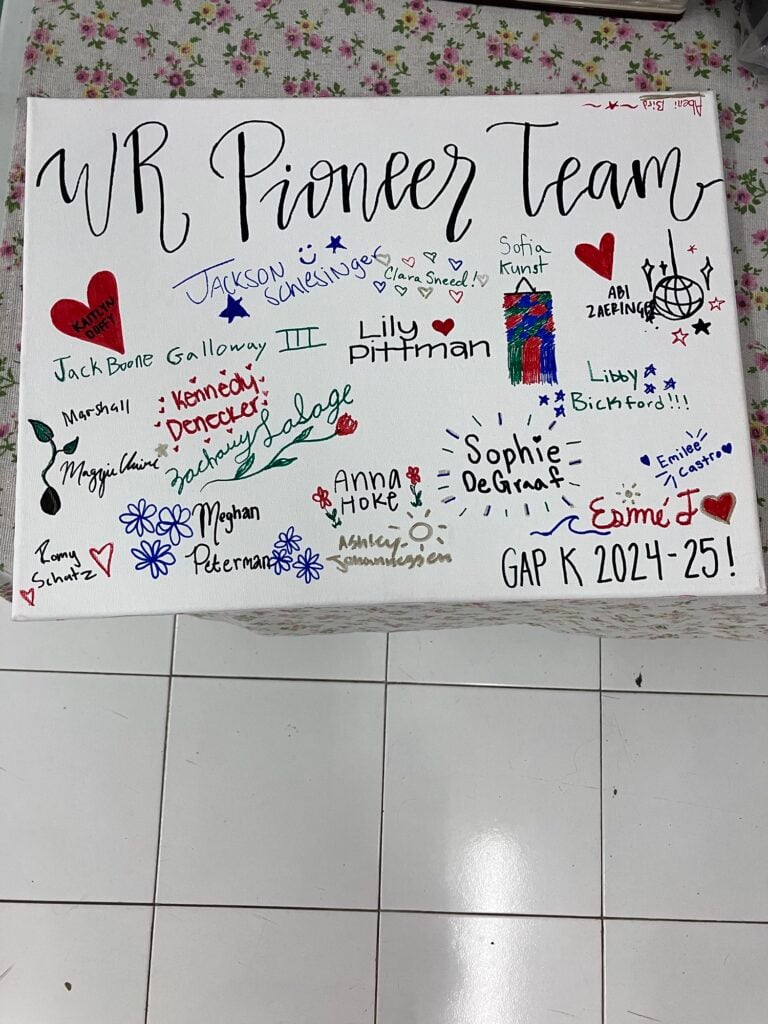 Abeni Bird
WR Pioneer Team
JACKSON
SCHLESINGER
Clara Sneed!
Sofia
Kunst
ABI
ZAERINGER
KAITLYN
DUFFY
Jack Boone Galloway III
Lily
Pittman
Libby
Bickford!!!
Marshall
Kennedy
Denecker
Zachary LaSage
Maggie
Sophie
DeGraaf
Emilee
Castro
Anna
HOKE
Meghan
Peterman
Ashley
Esmé J
Romy
Schatz
GAP K 2024-25!